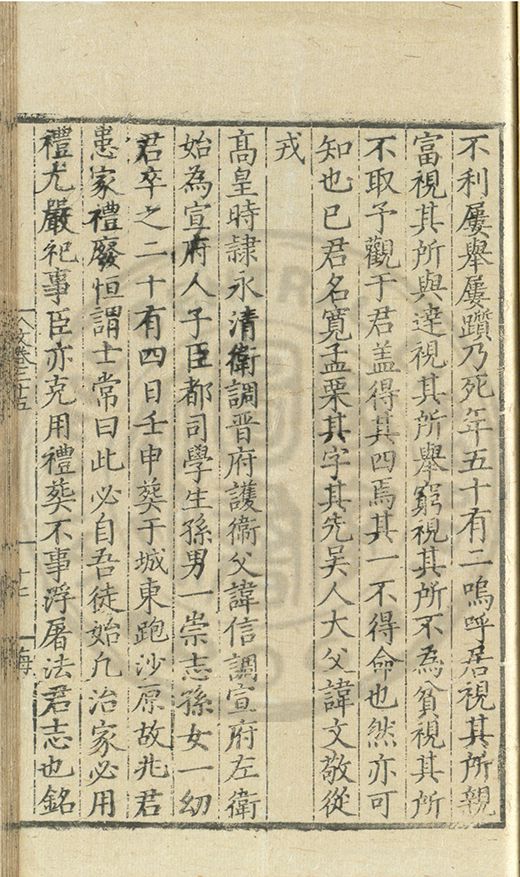 不利屢舉屢躓乃死年五十有二嗚呼居視其所親
富視其所與達視其所舉窮視其所不為貧視其所
不取予觀于君盖得其四焉其一不得命也然亦可
知也已君名寬孟栗其字其先吳人大父諱文敬從
戎
高皇時隸永清衛調晋府護衛父諱信調宣府左衛
始為宣府人子臣都司學生孫男一崇志孫女一幼
君卒之二十有四日壬申葬于城東跑沙原故兆君
患家禮廢恒謂士常曰此必自吾徒始凢治家必用
禮尤嚴祀事臣亦克用禮葬不事浮屠法君志也銘
文卷三十五
十七
海